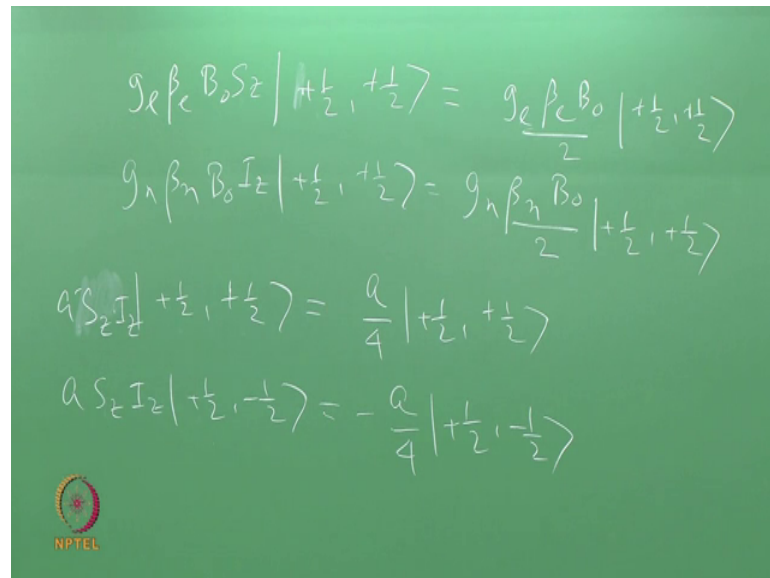 gₑβₑB₀S_z|+½, +½⟩ = gₑβₑB₀/2 |+½, +½⟩
gₙβₙB₀I_z|+½, +½⟩ = gₙβₙB₀/2 |+½, +½⟩
aS_zI_z|+½, +½⟩ = a/4 |+½, +½⟩
aS_zI_z|+½, -½⟩ = -a/4 |+½, -½⟩
NPTEL